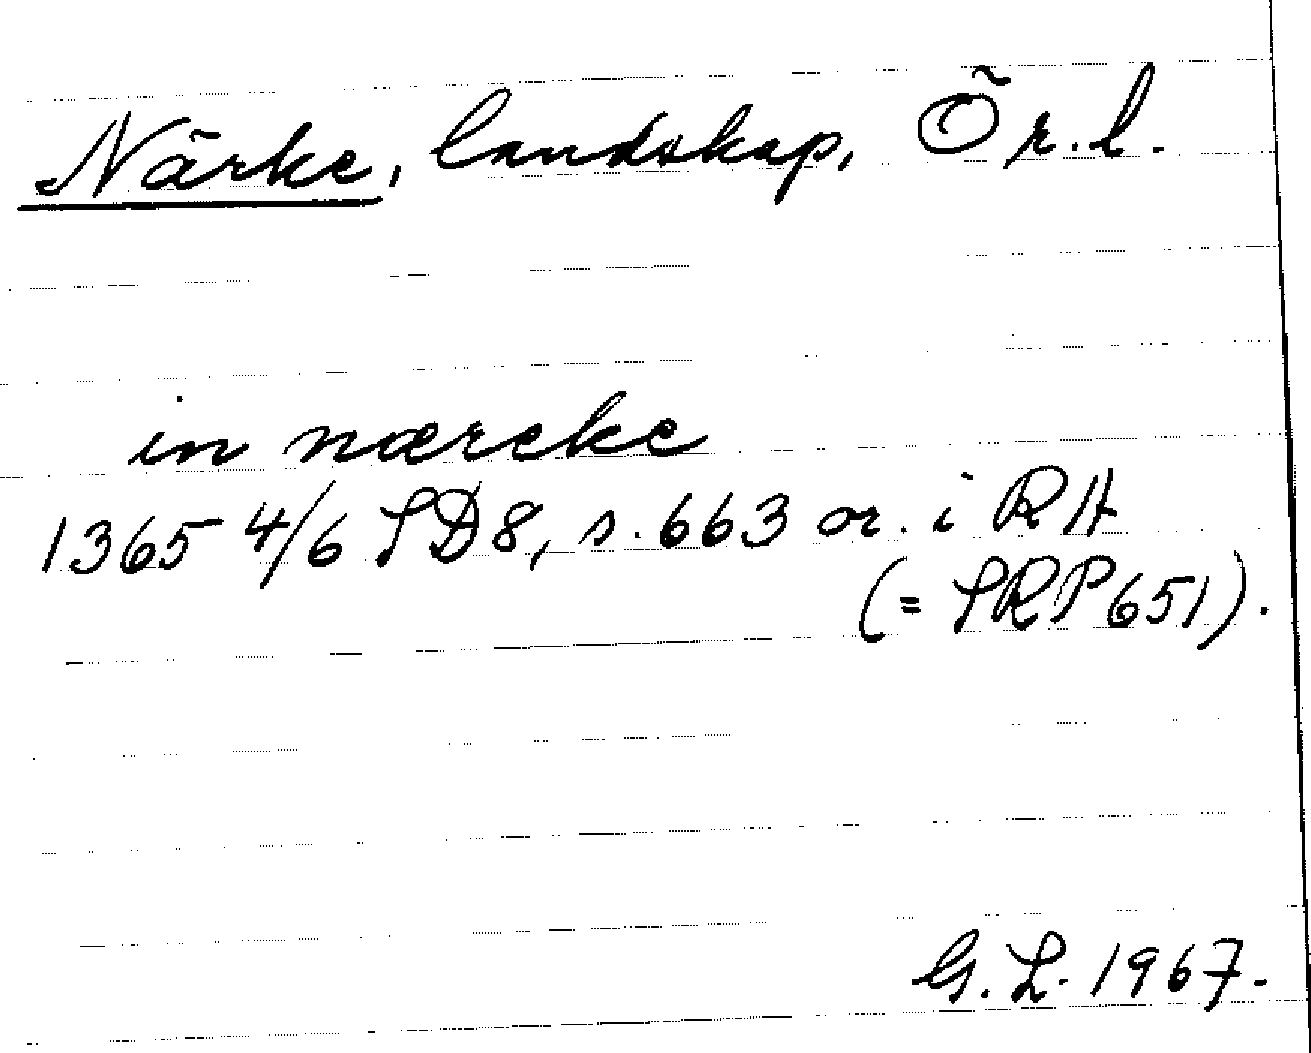 Närke, landskap, Ör. l.
in nærcke
1365 4/6 SD8, s. 663 or. i RA
(= SRP 651).
G. L. 1967.